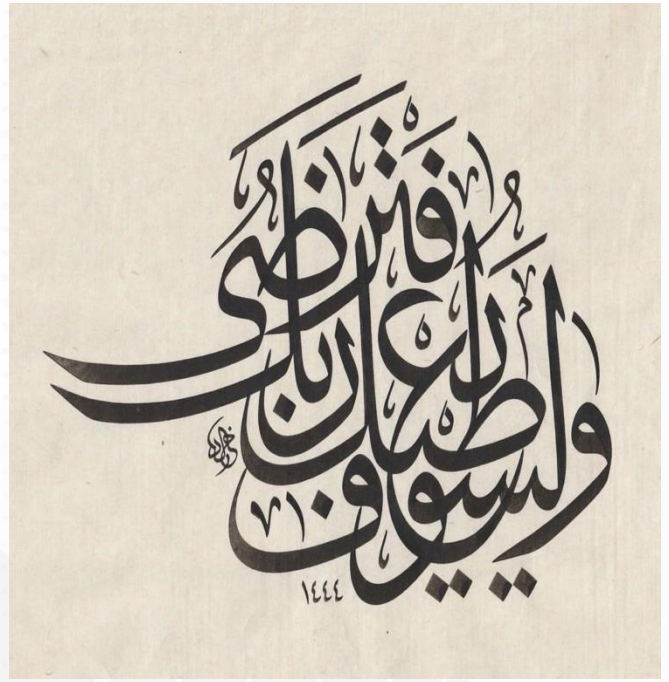 ولسوف يعطيك ربك فترضى
١٤٤٤